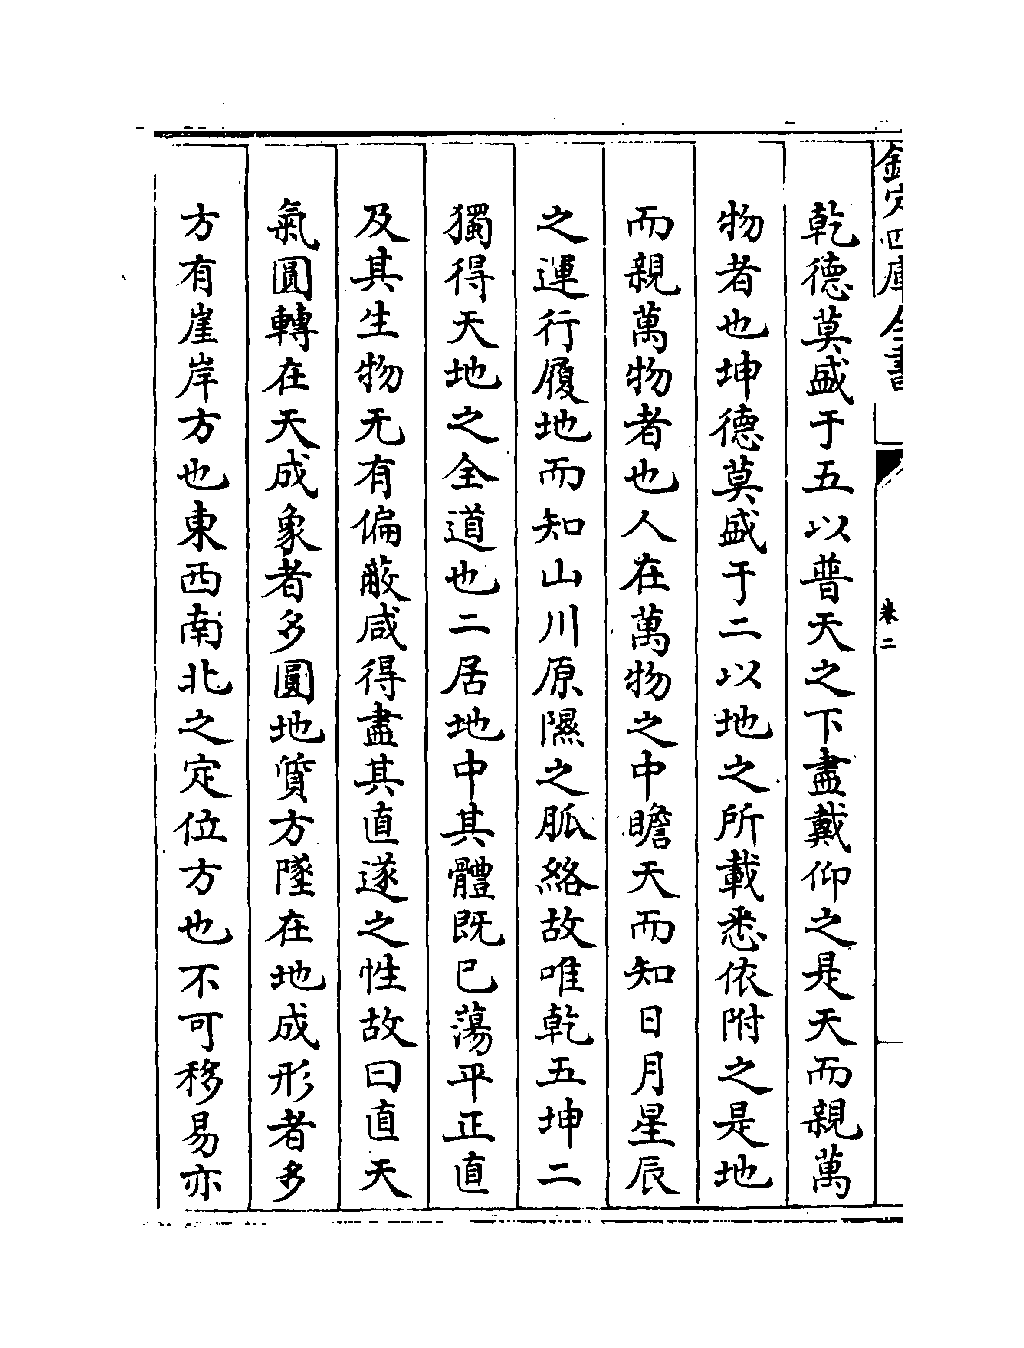 欽定四庫全書
卷二
乾德莫盛于五以普天之下盡戴仰之是天而親萬
物者也坤德莫盛于二以地之所載悉依附之是地
而親萬物者也人在萬物之中瞻天而知日月星辰
之運行履地而知山川原隰之脈絡故唯乾五坤二
獨得天地之全道也二居地中其體既已蕩平正直
及其生物无有偏蔽咸得盡其直遂之性故曰直天
氣圓轉在天成象者多圓地質方墜在地成形者多
方有崖岸方也東西南北之定位方也不可移易亦